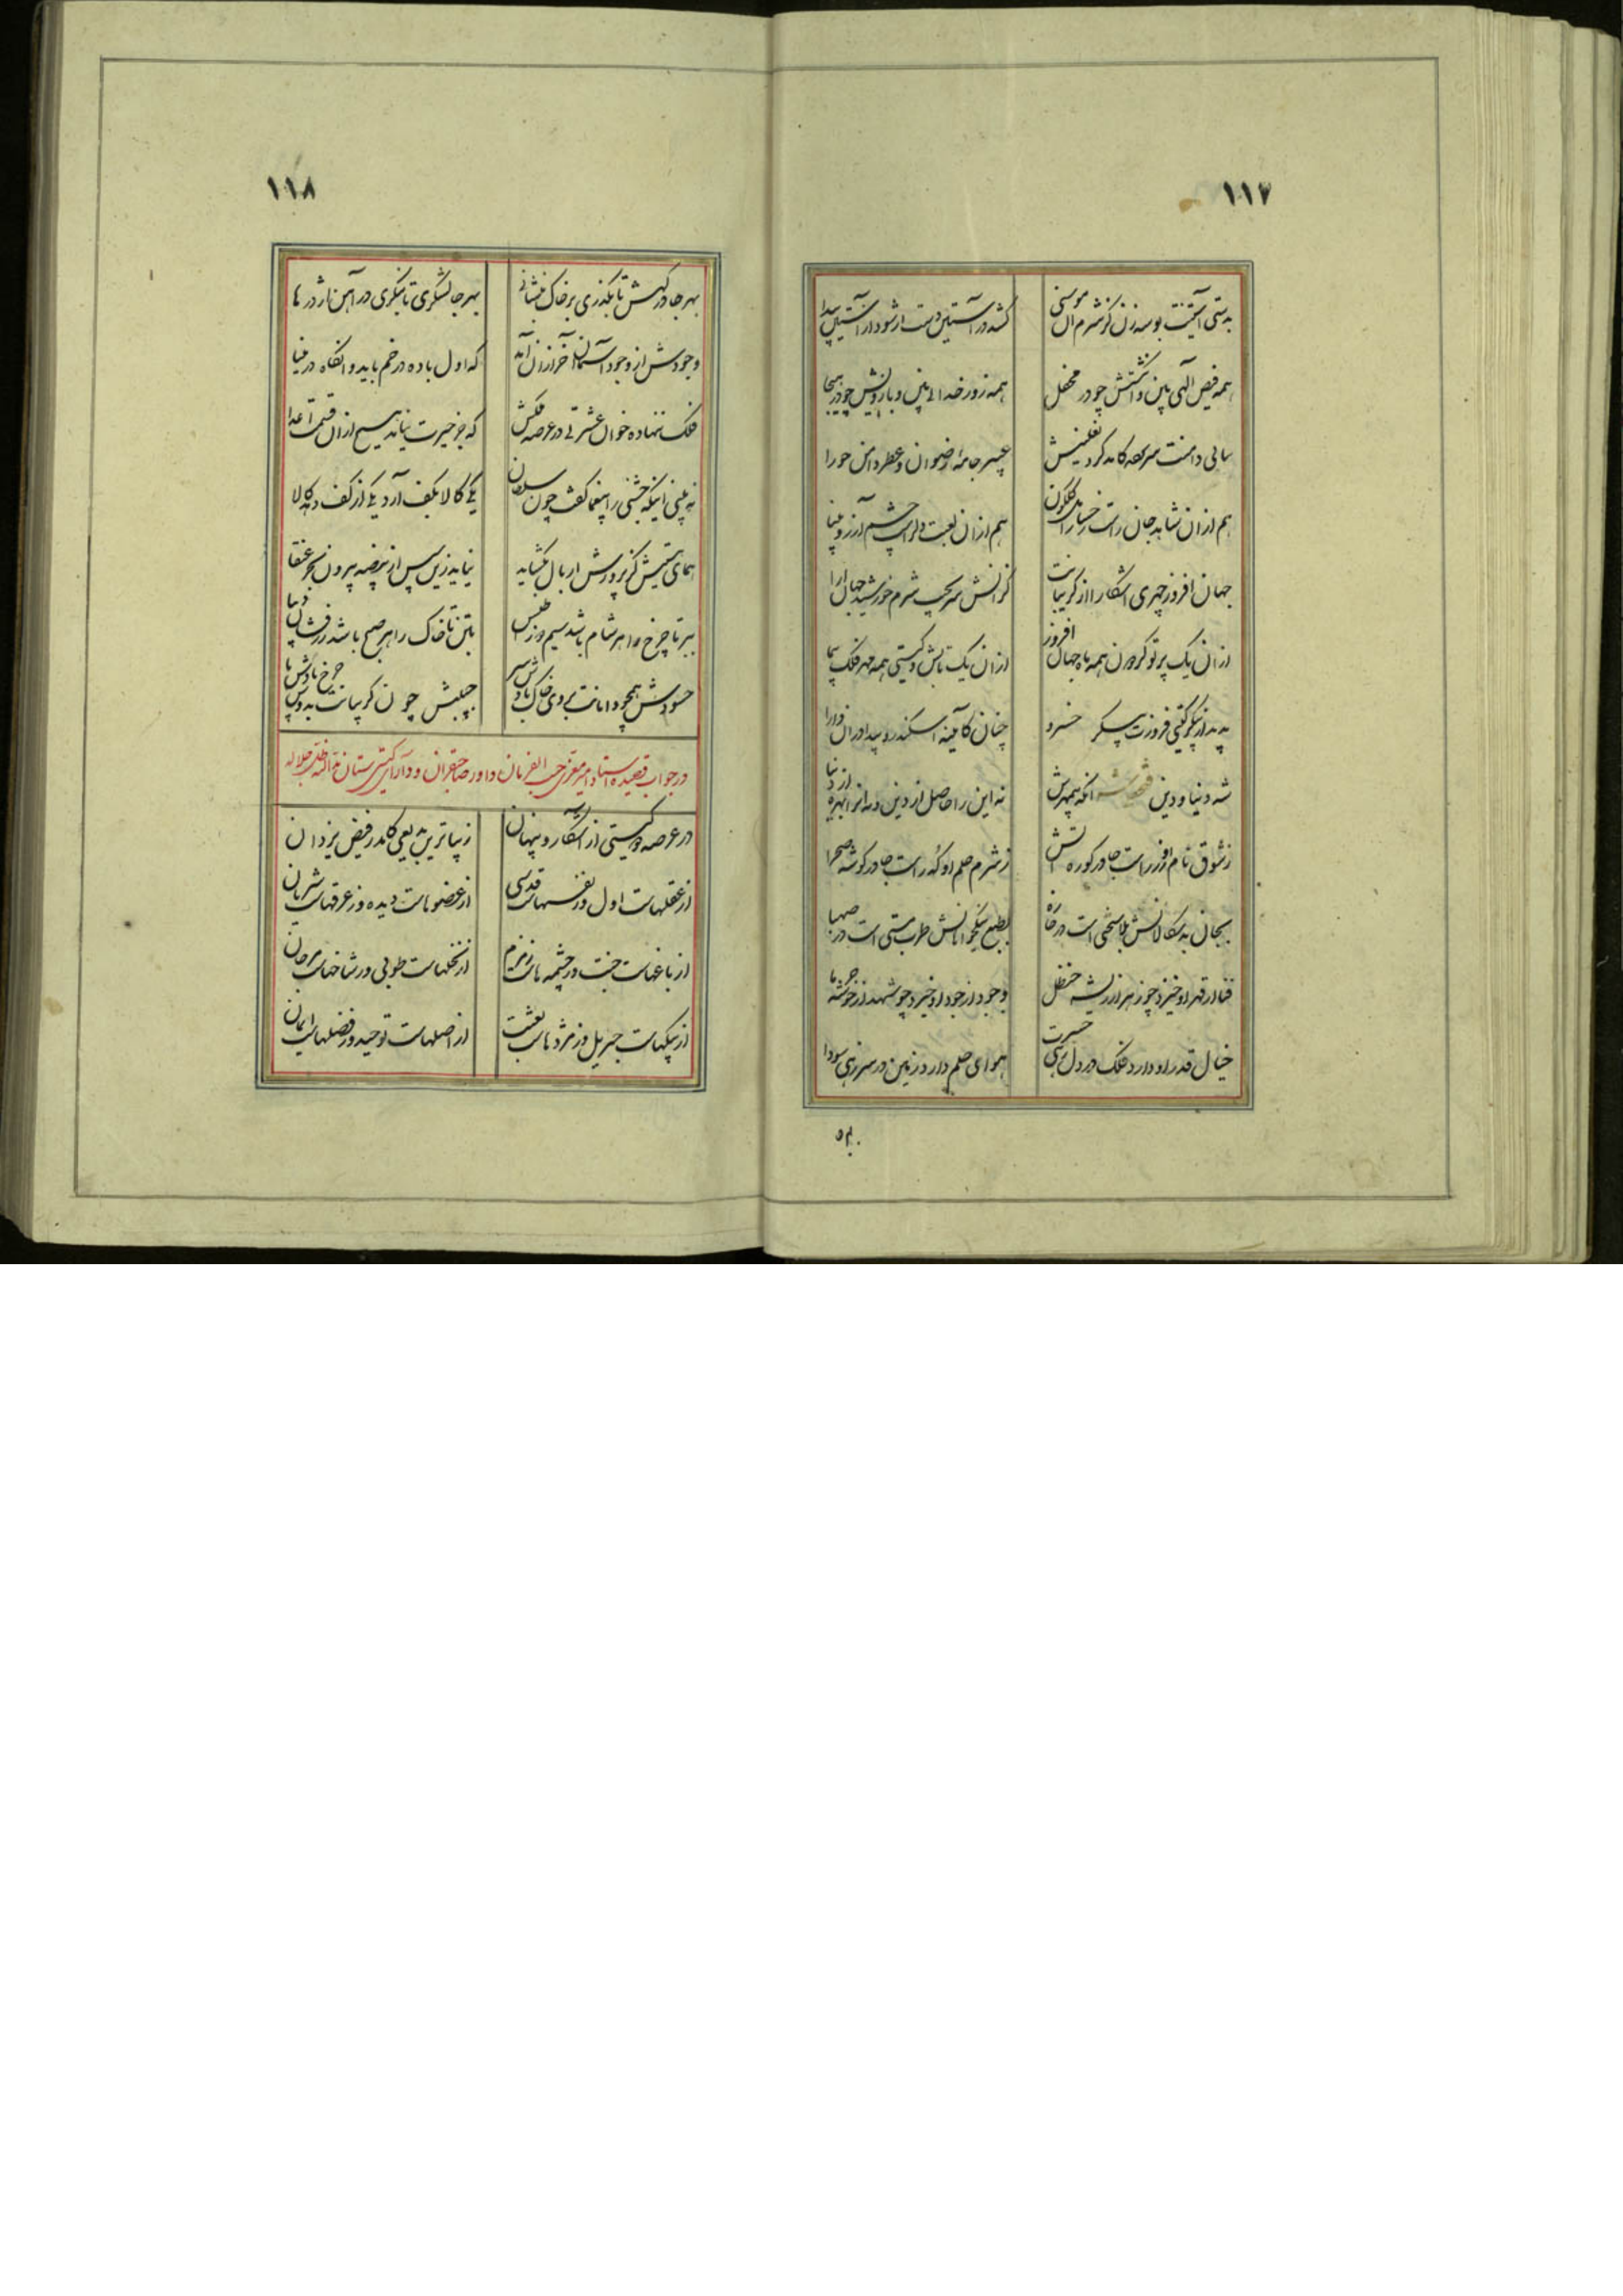 ۱۱۷
بدستی آستینت بوسه زن کز شرم آن موسی
کشد در آستین دست ار شود از آستین پیدا
همه فیض الهی بین و انگشتش چو در محفل
همه زور خدایی بین و بازویش چو در هیجا
عبیر جامهٔ رضوان و عطر دامن حورا
هم ازان شاهد جان راست رخسار گلگون
هم ازان لعبت دل راست چشم آرزو بینا
جهان افروز چهری آشکارا از گریبانت
کزانش سر بجیب شرم خورشید جهان آرا
ازان یک پرتو گردون همه ماه جهان افروز
ازان یک تابش و گیتی همه مهر فلک سیما
پدید از پیکر گیتی فروزت پیکر خسرو
چنان کآیینه اسکندر و پیدا در آن دارا
شه دنیا و دین فتحعلی شه آنکه بیمهرش
نه این را حاصل از دین و نه آنرا بهره از دنیا
ز شوق نام او زر راست جا در کوره آتش
ز شرم حلم او که راست جا در گوشه صحرا
بجان بدسگالانش بلا سختی است در خاره
بطبع نیکخواهانش طرب مستی است در صهبا
فنا از قهر او خیزد چو زهر از ریشه حنظل
وجود از جود او خیزد چو شهد از خوشه خرما
خیال قدر او دارد فلک در دل زهی حسرت
هوای حلم او دارد زمین در سر زهی سودا
۱۱۸
بهر جا در گهش تا بگذری بر خاک پیشانی
بهر جا لشکری تا بنگری در آهن اژدرها
وجودش از وجود آسمان آخر ازان آمد
که اول باده در خم باید و آنگاه در مینا
فلک ننهاده خوان عشرتی در عرصه ملکش
که جز حیرت نیاید هیچ ازان قسمت اعدا
نه بینی اینکه جشنی را بیغما گفت چون سلطان
یکی کالا بکف آرد یکی از کف دهد کالا
همای هستیش گر پرورش را بال بگشاید
نیاید زین سپس از بیضه بیرون بچه عنقا
ببر تا چرخ را هر شام باشد سیم دوز اطلس
بتن تا خاک را هر صبح باشد زرفشان دیبا
حسودش همچو دامانت بروی خاک بادش سر
حبیبش چون گریبانت بدوش چرخ بادش پا
در جواب قصیده استاد امیر معزی حسب الفرمان داور صاحبقران و دارای گیتی ستان خدالله ظلال جلاله
در عرصه گیتی از آشکار و پنهان
زیباترین بدیعی کامد ز فیض یزدان
از عقلهاست اول وز نفسهاست قدسی
از عضوهاست دیده وز عرقهاست شریان
از باغهاست جنت وز چشمه هاست زمزم
از نخلهاست طوبی وز شاخهاست مرجان
از پیکهاست جبریل وز مژدهاست بعثت
از اصلهاست توحید وز فضلهاست ایمان